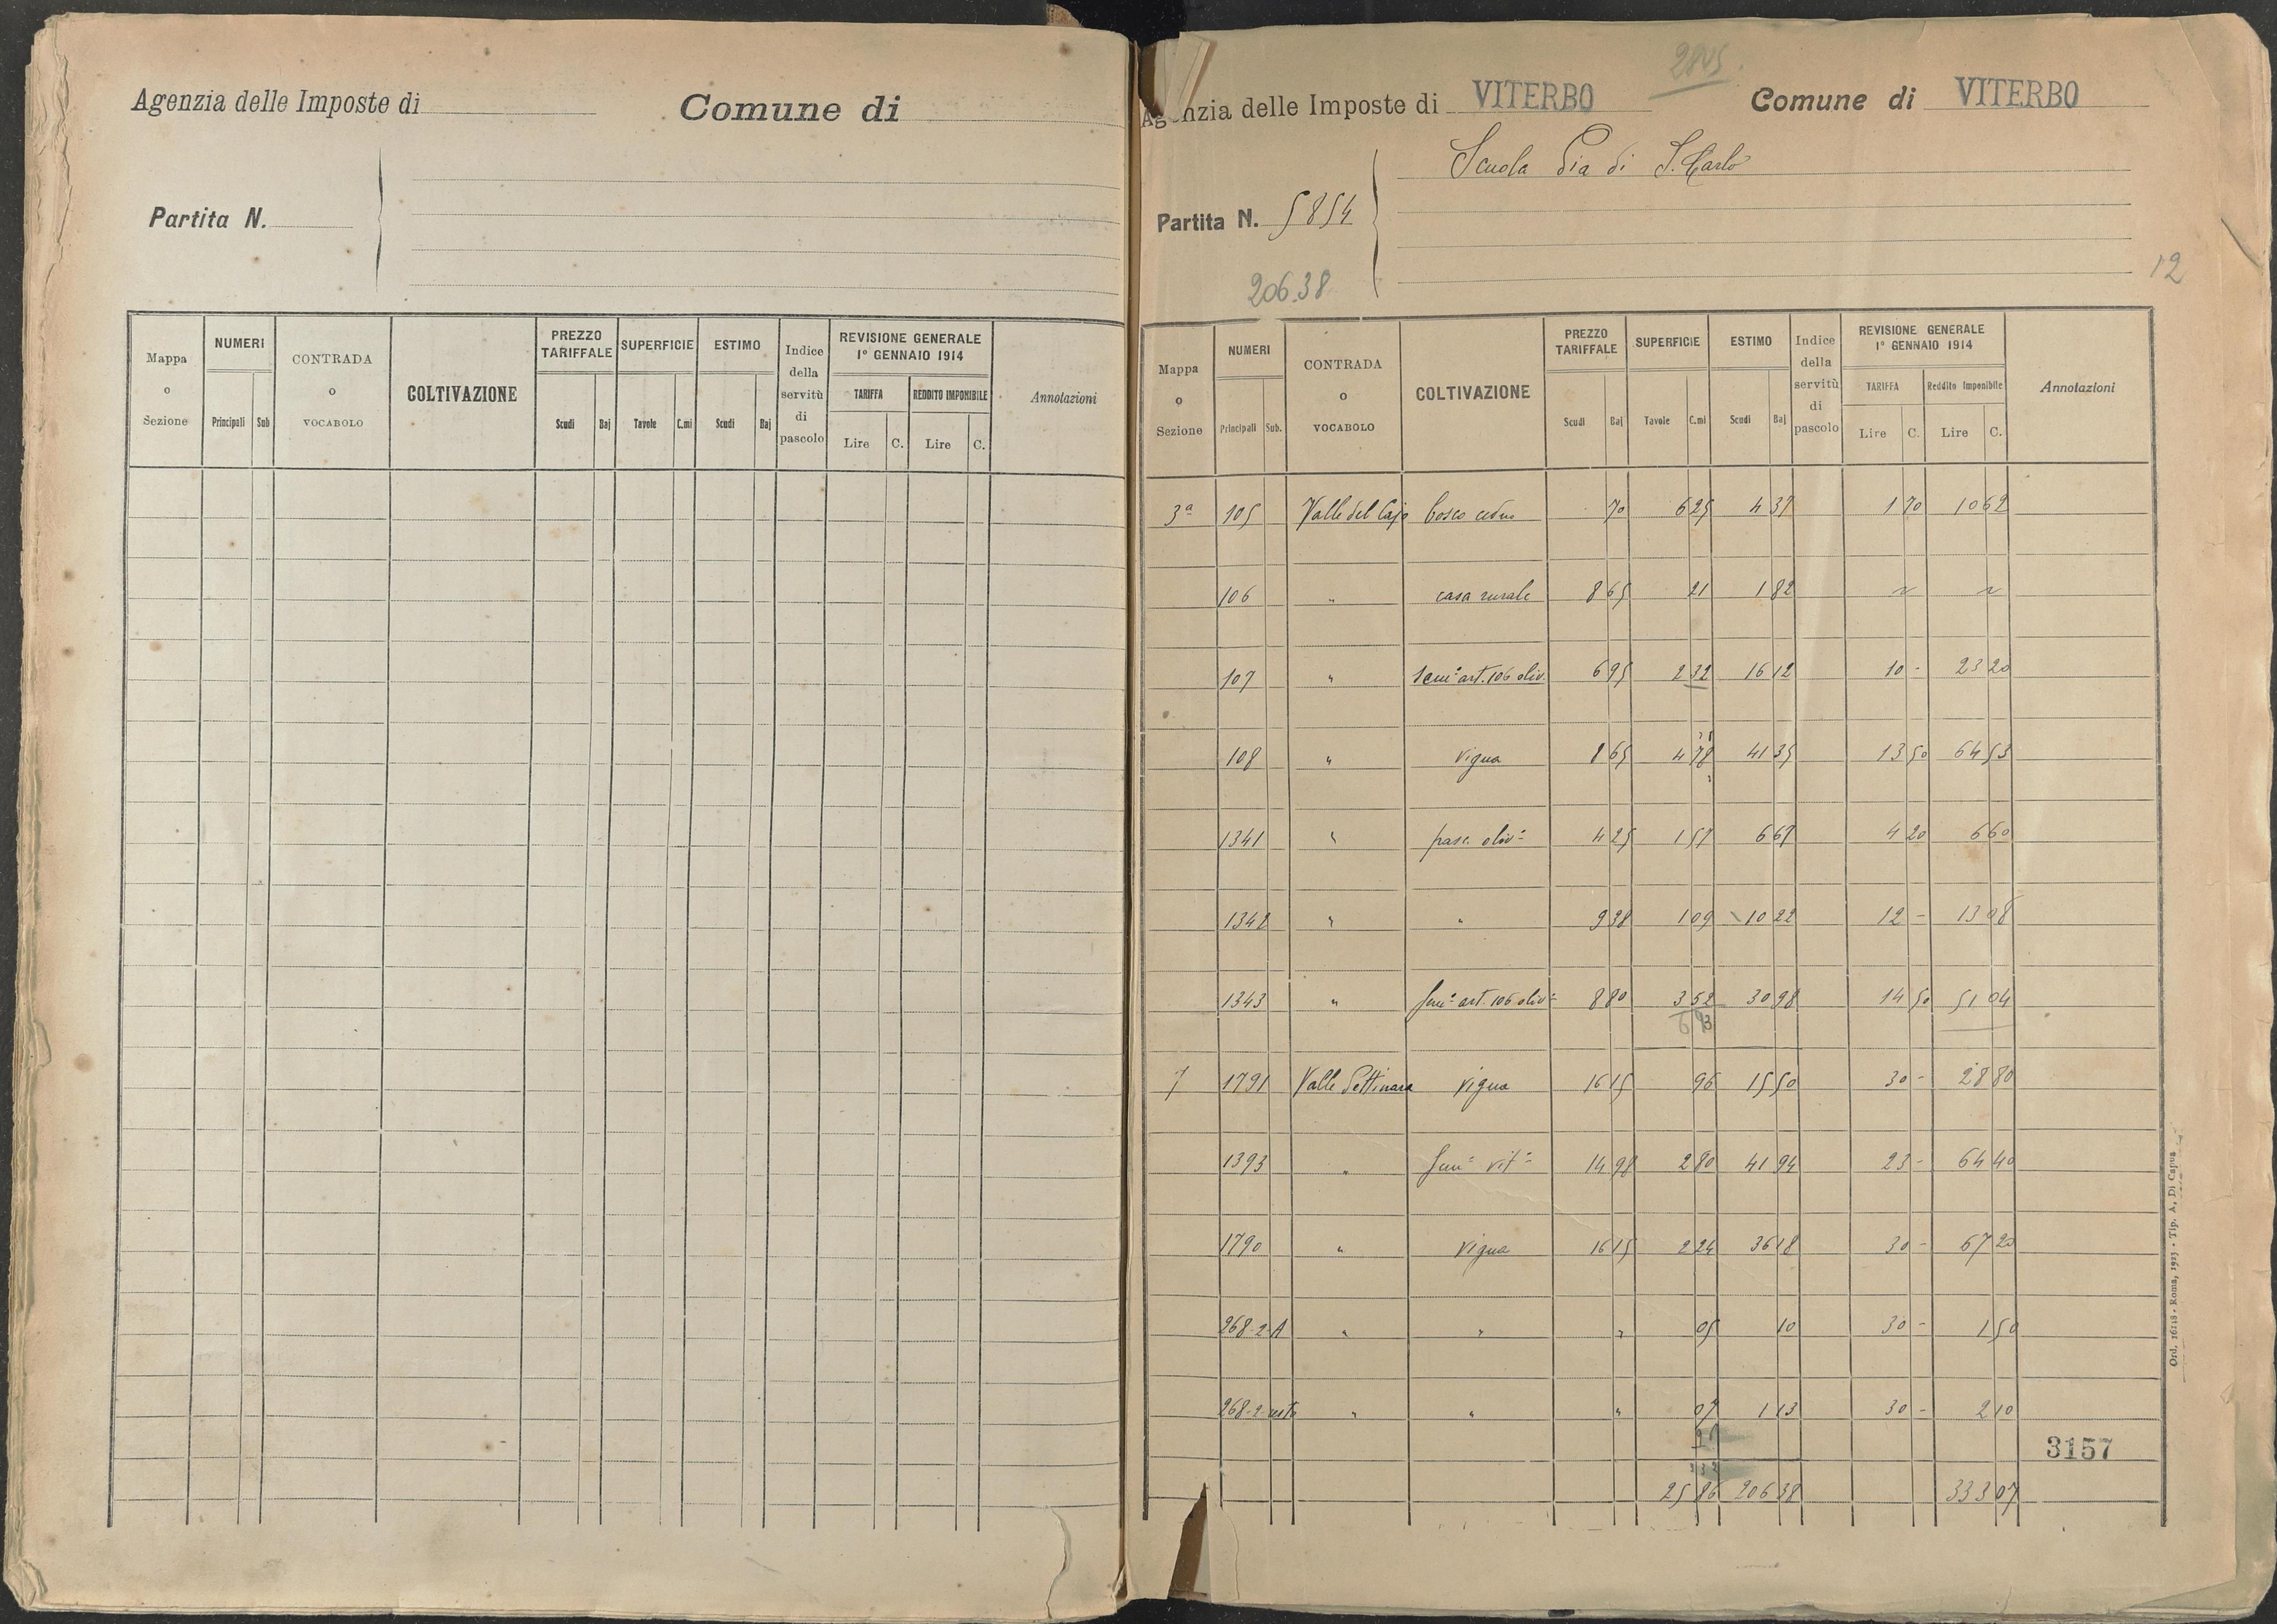 Agenzia delle Imposte di
Comune di
Partita N.
Mappa o Sezione | NUMERI Principali Sub | CONTRADA o VOCABOLO | COLTIVAZIONE | PREZZO TARIFFALE Scudi Baj | SUPERFICIE Tavole C.mi | ESTIMO Scudi Baj | Indice della servitù di pascolo | REVISIONE GENERALE 1° GENNAIO 1914 TARIFFA Lire C. REDDITO IMPONIBILE Lire C. | Annotazioni
2845.
nzia delle Imposte di VITERBO Comune di VITERBO
Scuola Pia di S. Carlo
Partita N. 5854
206.38
12
Mappa o Sezione | NUMERI Principali Sub. | CONTRADA o VOCABOLO | COLTIVAZIONE | PREZZO TARIFFALE Scudi Baj | SUPERFICIE Tavole C.mi | ESTIMO Scudi Baj | Indice della servitù di pascolo | REVISIONE GENERALE 1° GENNAIO 1914 TARIFFA Lire C. Reddito Imponibile Lire C. | Annotazioni
3ª 105 Valle del Cajo bosco ceduo 70 6 25 4 37 1 70 10 62
106 " casa rurale 8 65 21 1 82 " "
107 " Semº art. 106 oliv. 6 95 2 32 16 12 10 - 23 20
108 " vigna 8 65 4 78 41 35 13 50 64 53
1341 " pasc. olivº 4 25 1 57 6 67 4 20 6 60
1342 " " 9 38 1 09 10 22 12 - 13 08
1343 " Semº art. 106 olivº 8 80 3 52 30 98 14 50 51 04
7 1791 Valle Pettinara vigna 16 15 96 15 50 30 - 28 80
1393 " Semº vitº 14 98 2 80 41 94 23 - 64 40
1790 " vigna 16 15 2 24 36 18 30 - 67 20
268-2-A " " " 05 10 30 - 1 50
268-2-resto " " " 07 1 13 30 - 2 10
3157
25 86 206 38 333 07
Ord. 16118 - Roma, 1923 - Tip. A. Di Capua